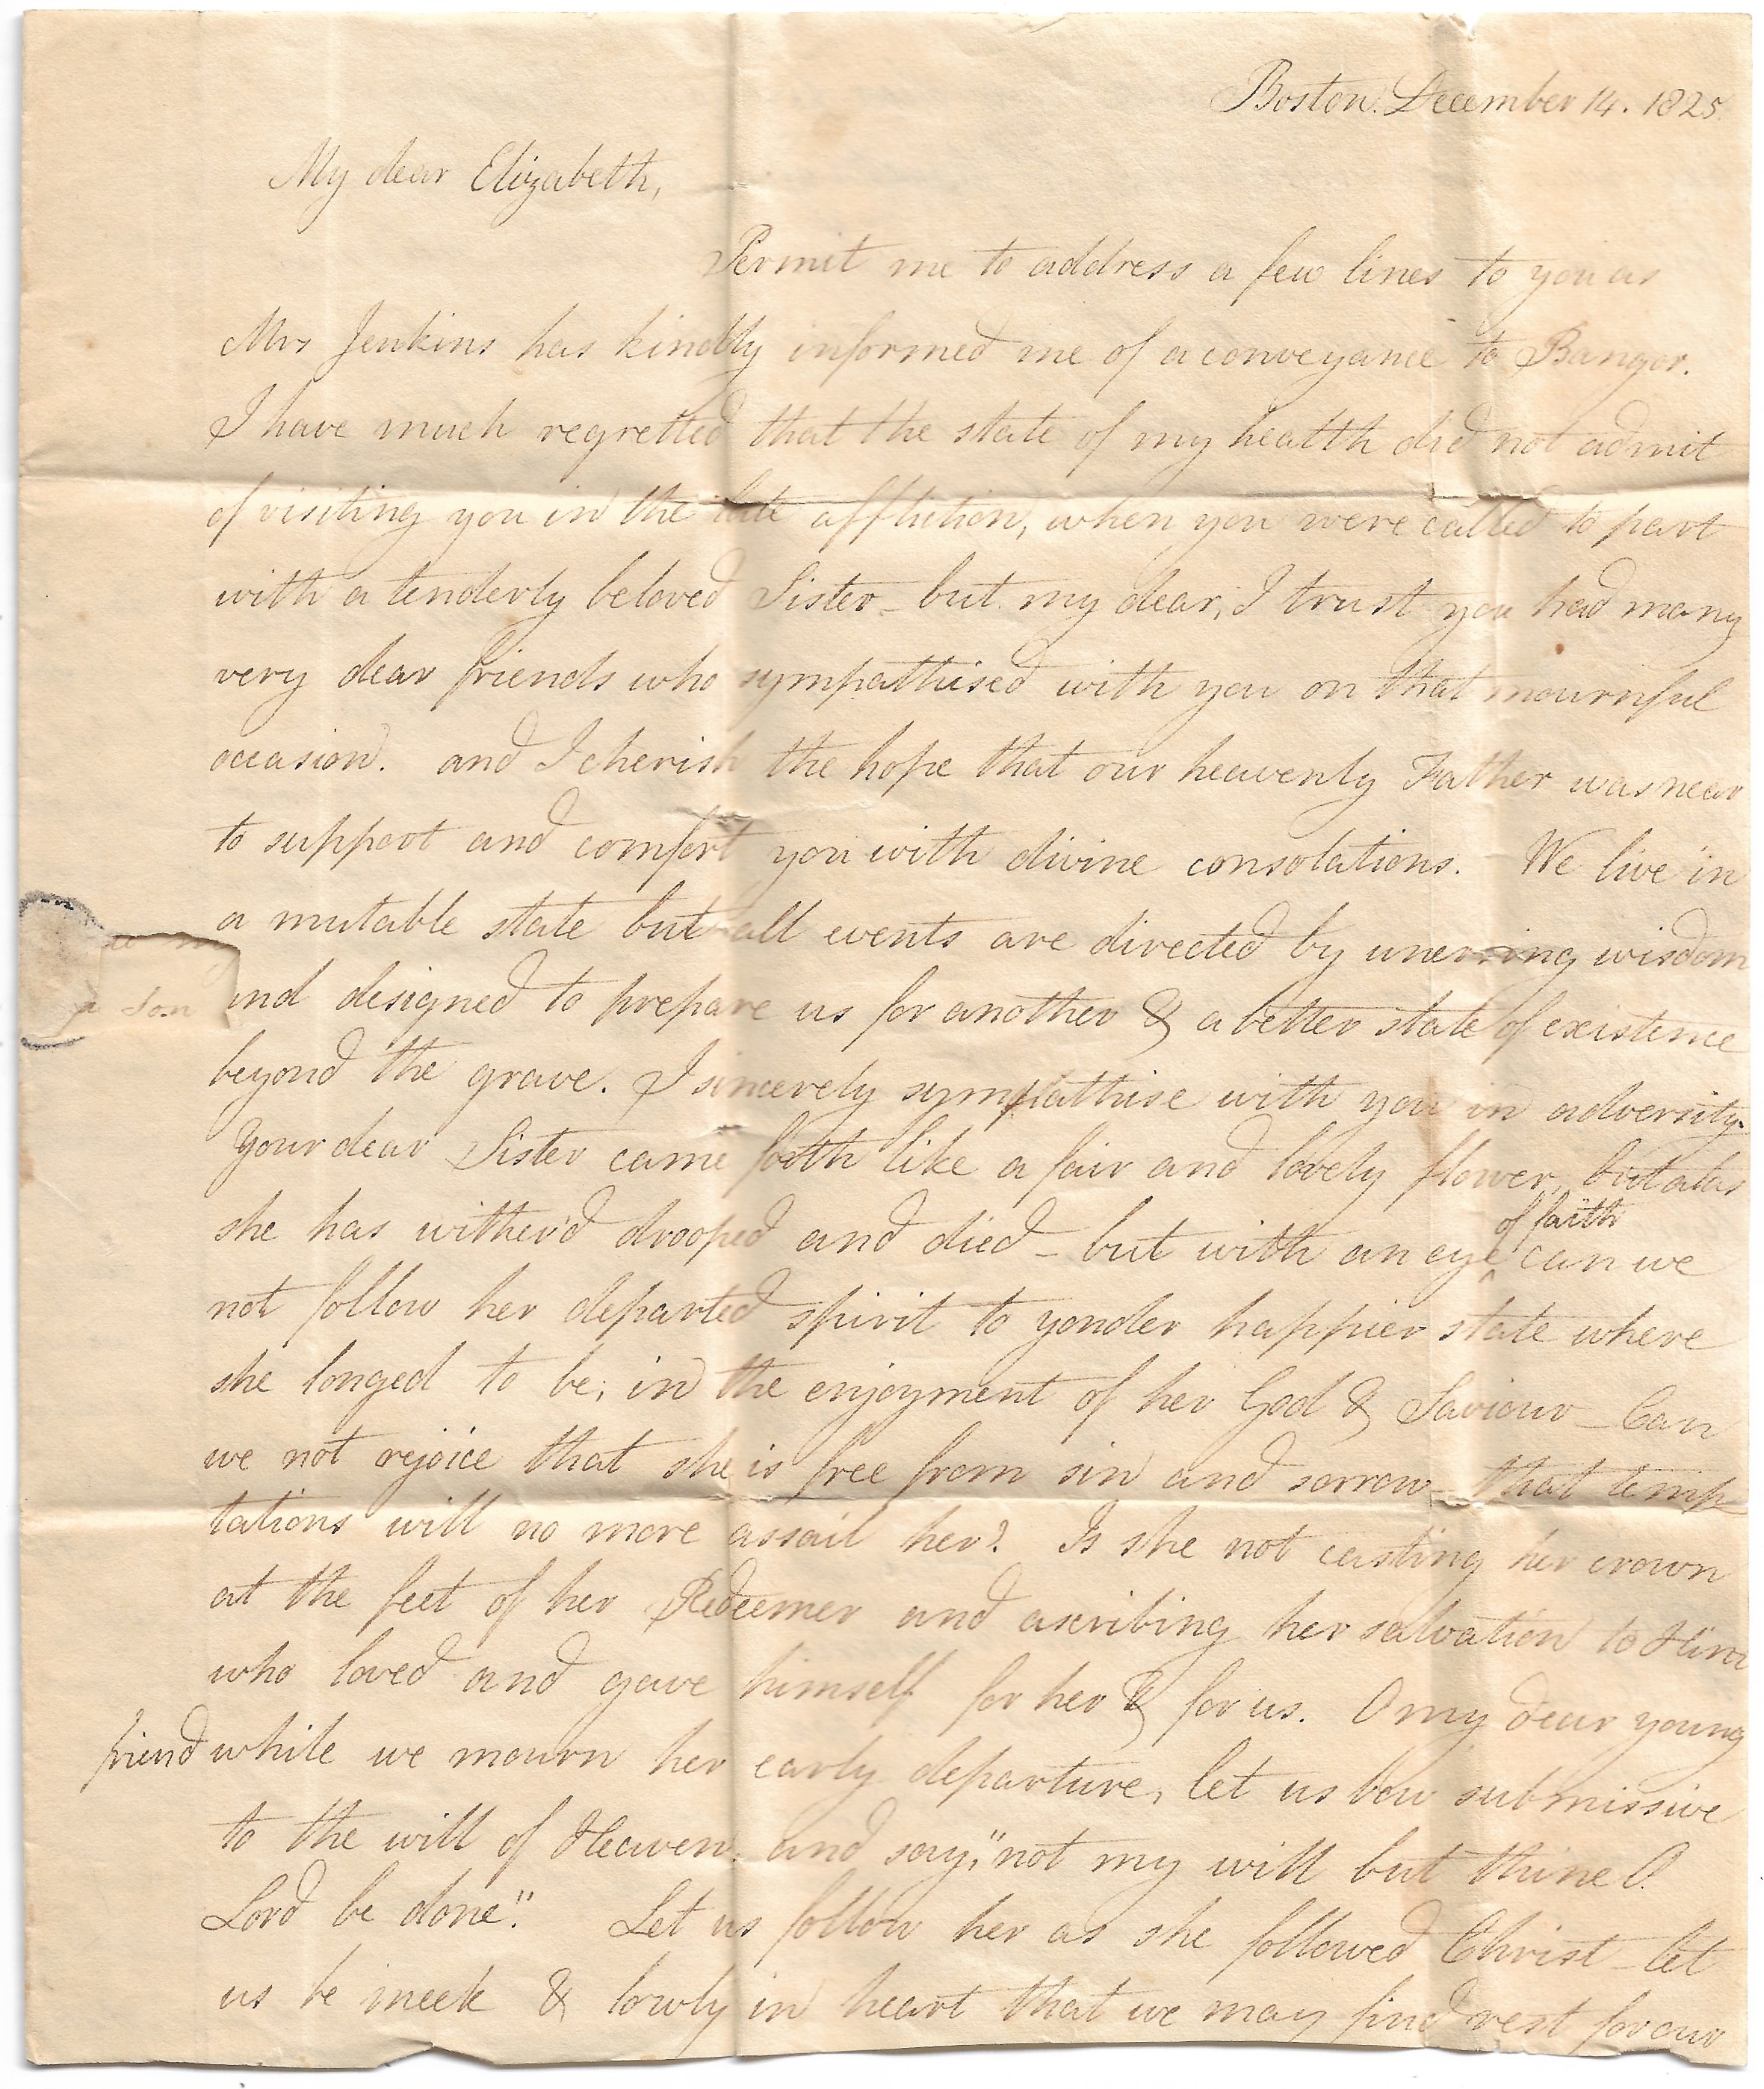 Boston. December 14. 1825.
My dear Elizabeth,
Permit me to address a few lines to you as
Mrs Jenkins has kindly informed me of a conveyance to Bangor.
I have much regretted that the state of my health did not admit
of visiting you in the late affliction, when you were called to part
with a tenderly beloved Sister – but my dear, I trust you had many
very dear friends who sympathised with you on that mournful
occasion. and I cherish the hope that our heavenly Father was near
to support and comfort you with divine consolations. We live in
a mutable state but all events are directed by unerring wisdom
and designed to prepare us for another & a better state of existence
beyond the grave. I sincerely sympathise with you in adversity.
Your dear Sister came forth like a fair and lovely flower, but alas
of faith
she has wither'd drooped and died – but with an eye ^ can we
not follow her departed spirit to yonder happier state where
she longed to be; in the enjoyment of her God & Saviour – Can
we not rejoice that she is free from sin and sorrow – that temp
tations will no more assail her? Is she not casting her crown
at the feet of her Redeemer and ascribing her salvation to Him
who loved and gave himself for her & for us. O my dear young
friend while we mourn her early departure, let us bow submissive
to the will of Heaven. and say, "not my will but thine O.
Lord be done". Let us follow her as she followed Christ – let
us be meek & lowly in heart that we may find rest for our
son